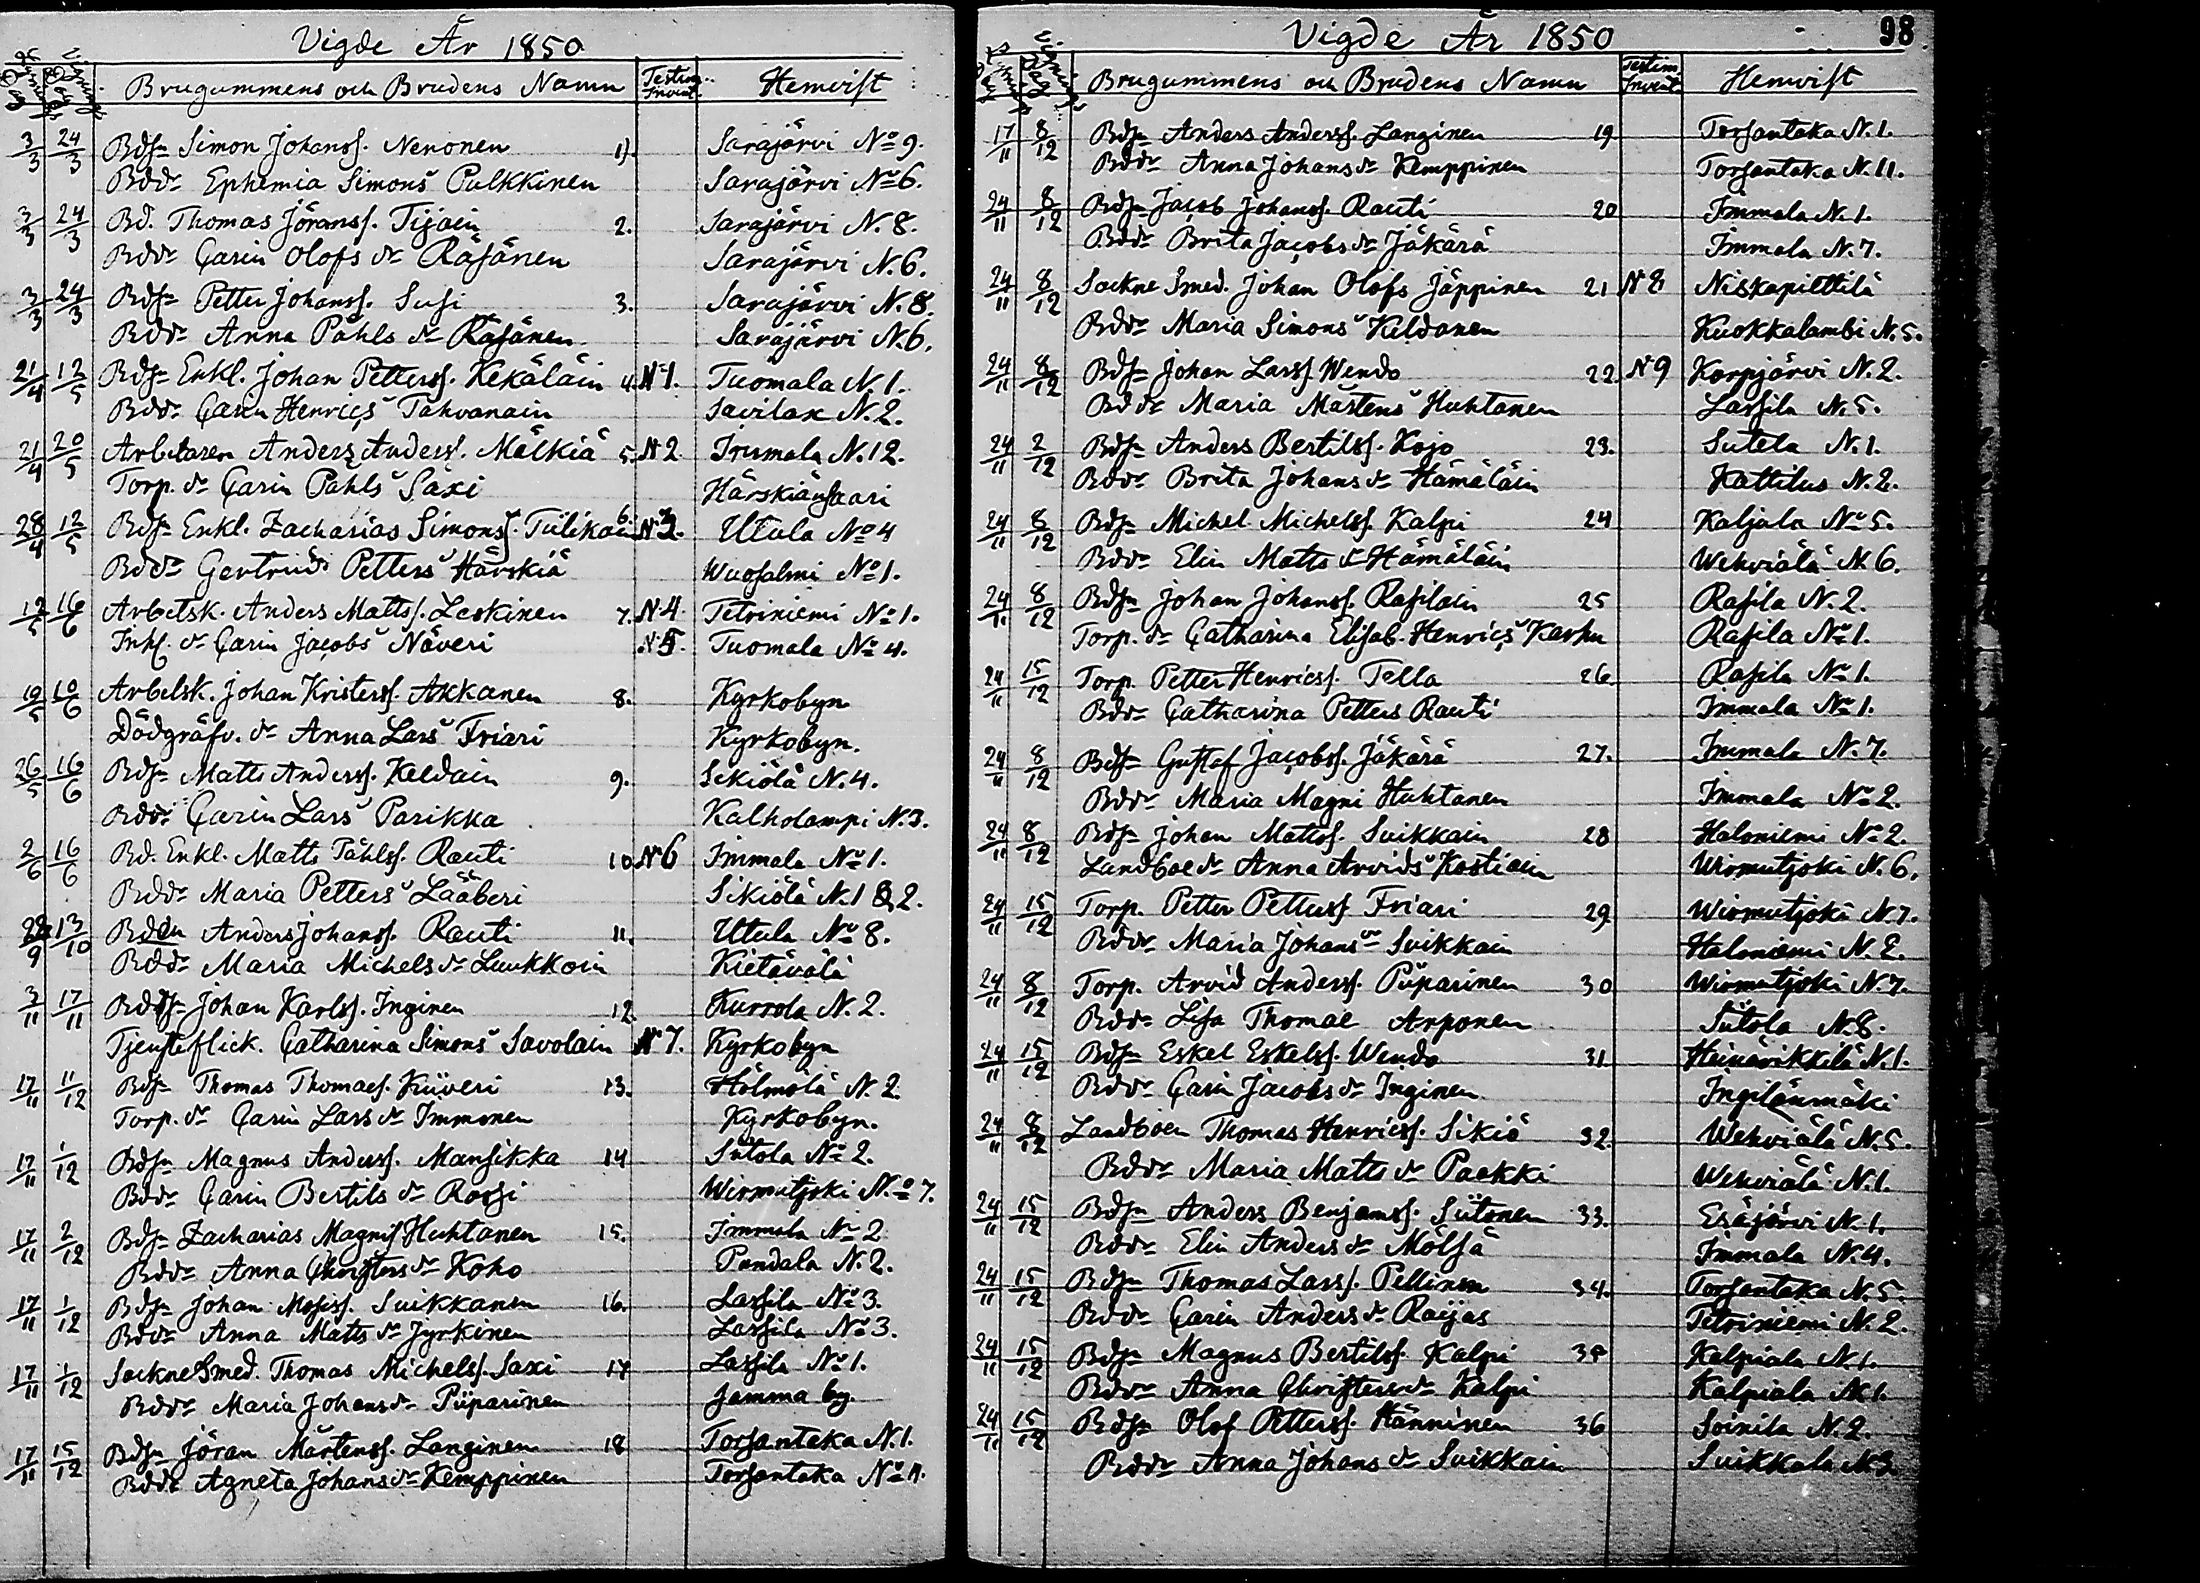 Vigde År 1850
Lysnings Dag Vignings Dag Brugummens och Brudens Namn Testim. Invent. Hemvist
3/3 24/3 Bdsn Simon Johanss. Nenonen 1). Sarajärvi No 9.
Bddr Ephemia Simons Pulkkinen Sarajärvi No 6.
3/3 24/3 Bd. Thomas Jöranss. Tijain 2. Sarajärvi N. 8.
Bddr Carin Olofs dr Räsänen Sarajärvi N. 6.
3/3 24/3 Bdsn Petter Johanss. Susi 3. Sarajärvi N. 8.
Bddr Anna Påhls dr Räsänen Sarajärvi N. 6.
21/4 12/5 Bdsn Enkl. Johan Petterss. Kekäläin 4. N 1. Tuomala N. 1.
Bddr Carin Henrics Tahvanain Savilax N. 2.
21/4 20/5 Arbetaren Anders Anderss. Mälkiä 5. N 2 Irumala N. 12.
Torp. dr Carin Påhls Saxi Härskiänsaari
28/4 12/5 Bdsn Enkl. Zacharias Simonss. Tiilikain 6. N 3. Utula No 4
Bddr Gertrud Petters Härskiä Wuosalmi No 1.
12/5 16/6 Arbetsk. Anders Mattss. Leskinen 7. N. 4. Tetriniemi No 1.
Inh. dr Carin Jacobs Näveri N. 5. Tuomala No 4.
12/5 10/6 Arbetsk. Johan Kristerss. Akkanen 8. Kyrkobyn
Dödgräfv. dr Anna Lars Friari Kyrkobyn.
26/5 16/6 Bdsn Matts Anderss. Keldain 9. Sikiölä N. 4.
Bddr Carin Lars Parikka Kalholampi N. 3.
2/6 16/6 Bd. Enkl. Matts Påhlss. Rauti 10. N 6 Immala No 1.
Bddr Maria Petters Lääberi Sikiölä N. 1 & 2.
28/9 13/10 Bdden Anders Johanss. Rauti 11. Utula No 8.
Bddr Maria Michels dr Luukkoin Kietävälä
3/11 17/11 Bdsn Johan Karlss. Inginen 12. Kurrola N. 2.
Tjensteflick. Catharina Simons Savolain N 7. Kyrkobyn
17/11 11/12 Bdsn Thomas Thomaes. Kiiveri 13. Hölmölä N. 2.
Torp. dr Carin Lars dr Immonen Kyrkobyn.
17/11 1/12 Bdsn Magnus Anderss. Mansikka 14 Sutola No 2.
Bddr Carin Bertils dr Rossi Wirmutjoki No 7.
17/11 2/12 Bdsn Zacharias Magnis. Huhtanen 15. Immala No 2
Bddr Anna Christers dr Koho Pundala N. 2.
17/11 1/12 Bdsn Johan Mosiss. Suikkanen 16. Lassila No 3.
Bddr Anna Matts dr Jyrkinen Lassila No 3.
17/11 1/12 Sockne Smed. Thomas Michelss. Saxi 17 Lassila No 1.
Bddr Maria Johans dr Piiparinen Samma by.
17/11 15/12 Bdsn Jöran Mårtenss. Langinen 18 Torsantaka N. 1.
Bddr Agneta Johans dr Kemppinen Torsantaka No 11.
98
Vigde År 1850
Lysnings Dag Vignings Dag Brugummens och Brudens Namn Testim Invent Hemvist
17/11 8/12 Bdsn Anders Anderss. Langinen 19 Torsantaka N. 1.
Bddr Anna Johans dr Kemppinen Torsantaka N. 11.
24/11 8/12 Bdsn Jacob Johanss. Rauti 20 Immala N. 1.
Bddr Brita Jacobs dr Jäkärä Immala N. 7.
24/11 8/12 Sockne Smed. Johan Olofs Jäppinen 21 N 8. Niskapiettilä
Bddr Maria Simons Keldanen Kuokkalambi N. 5.
24/11 8/12 Bdsn Johan Larss. Wendo 22. N 9 Korpjärvi N. 2.
Bddr Maria Mårtens Huhtanen Lassila N. 5.
24/11 2/12 Bdsn Anders Bertilss. Kojo 23. Sutela N. 1.
Bddr Brita Johans dr Hämäläin Kattilus N. 2.
24/11 8/12 Bdsn Michel Michelss. Kalpi 24 Kaljala No 5.
Bddr Elin Matts dr Hämäläin Wehviälä N. 6.
24/11 8/12 Bdsn Johan Johanss. Rasilain 25 Rasila N. 2.
Torp. dr Catharina Elisab. Henrics Karhu Rasila No 1.
24/11 15/12 Torp. Petter Henricss. Tella 26. Rasila No 1.
Bddr Catharina Petters Rauti Immala No 1.
24/11 8/12 Bdsn Gustaf Jacobss. Jäkärä 27. Immala N. 7.
Bddr Maria Magni Huhtanen Immala No 2.
24/11 8/12 Bdsn Johan Mattss. Suikkain 28 Haloniemi No 2.
Landboe dr Anna Arvids Kostiain Wirmutjoki N. 6.
24/11 15/12 Torp. Petter Petterss Friari 29. Wirmutjoki N. 7.
Bddr Maria Johans dr Suikkain Haloniemi N. 2.
24/11 8/12 Torp. Arvid Anderss. Piiparinen 30 Wirmutjoki N. 7.
Bddr Lisa Thomae Arponen Sutola N. 8.
24/11 15/12 Bdsn Eskel Eskelss. Wendo 31 Heinävikkilä N. 1.
Bddr Carin Jacobs dr Inginen Ingilänmäki
24/11 8/12 Landboen Thomas Henricss. Sikiö 32. Wehviälä N. 5.
Bddr Maria Matts dr Paekki Wehviälä N. 1.
24/11 15/12 Bdsn Anders Benjamss. Siitonen 33. Esäjärvi N. 1.
Bddr Elin Anders dr Mölsä Immala N. 4.
24/11 15/12 Bdsn Thomas Larss. Pellinen 34. Torsantaka N. 5.
Bddr Carin Anders dr Raijas Tetriniemi N. 2.
24/11 15/12 Bdsn Magnus Bertilss. Kalpi 35 Kalpiala N. 1.
Bddr Anna Christers dr Kalpi Kalpiala N. 1.
24/11 15/12 Bdsn Olof Petterss. Hänninen 36 Soinila N. 2.
Bddr Anna Johans dr Suikkain Suikkala N. 3.